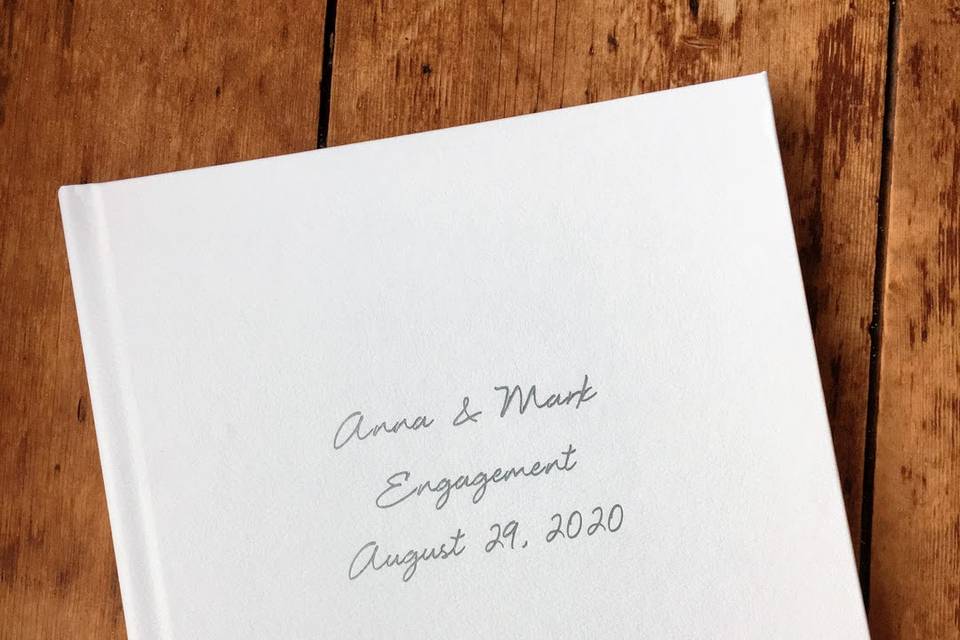 Anna & Mark
Engagement
August 29, 2020